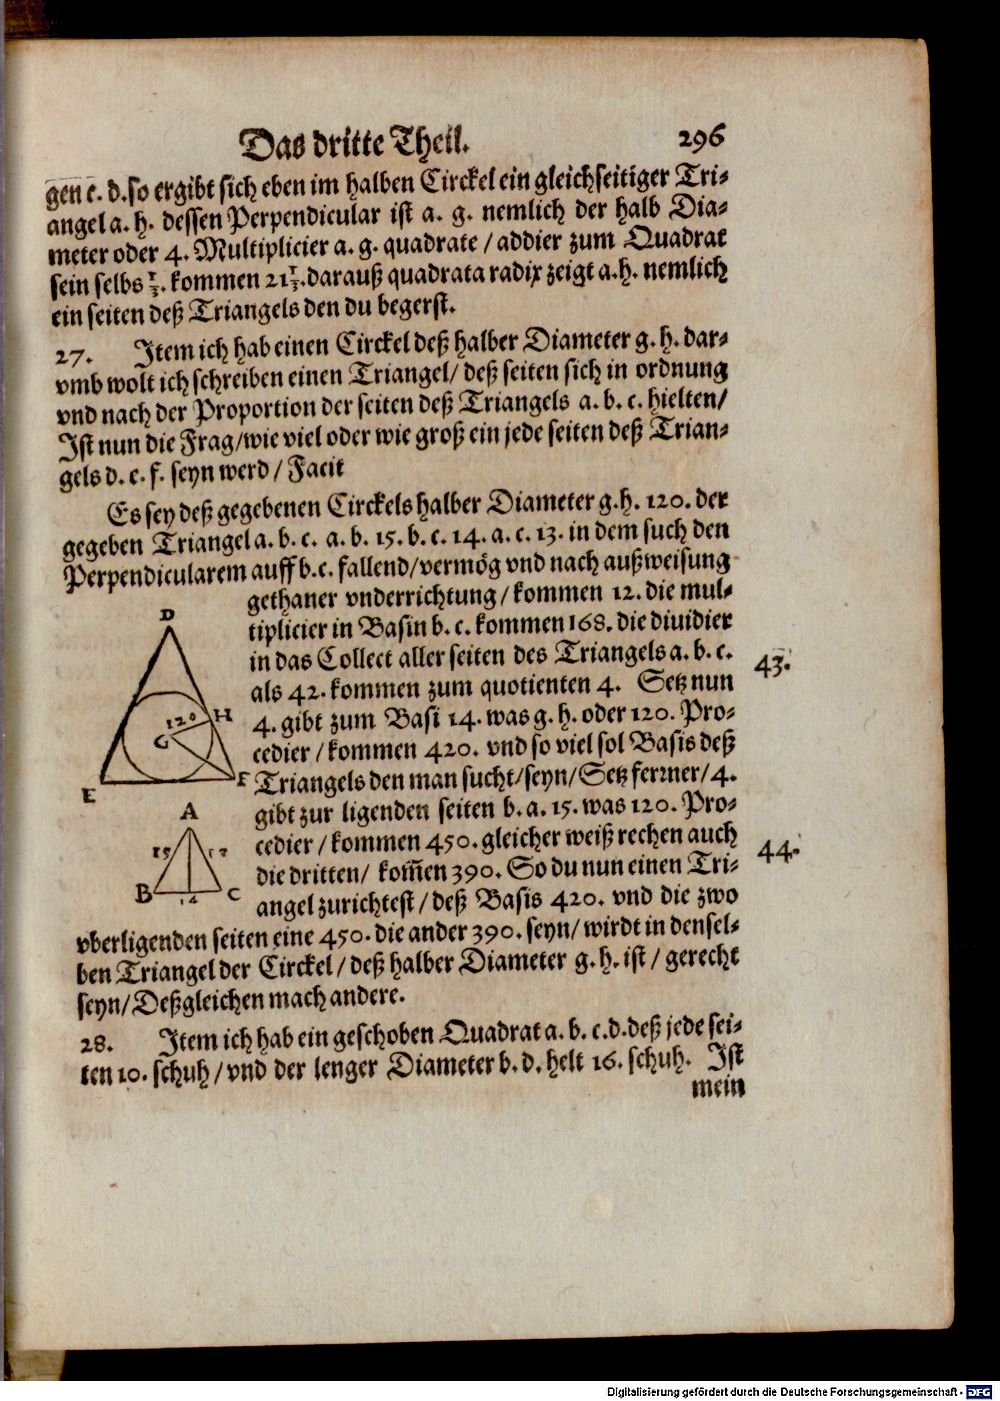 Das dritte Theil. 296
gen c. d. so ergibt sich eben im halben Circkel ein gleichseitiger Tri-
angel a. h. dessen Perpendicular ist a. g. nemlich der halb Dia-
meter oder 4. Multiplicier a. g. quadrate / addier zum Quadrat
sein selbs ⅓. kommen 21⅓. darauß quadrata radix zeigt a. h. nemlich
ein seiten deß Triangels den du begerst.
27. Item ich hab einen Circkel deß halber Diameter g. h. dar-
vmb wolt ich schreiben einen Triangel / deß seiten sich in ordnung
vnd nach der Proportion der seiten deß Triangels a. b. c. hielten /
Ist nun die Frag / wie viel oder wie groß ein jede seiten deß Trian-
gels d. e. f. seyn werd / Facit
Es sey deß gegebenen Circkels halber Diameter g. h. 120. der
gegeben Triangel a. b. c. a. b. 15. b. c. 14. a. c. 13. in dem such den
Perpendicularem auff b. c. fallend / vermög vnd nach außweisung
gethaner vnderrichtung / kommen 12. die mul-
tiplicier in Basin b. c. kommen 168. die diuidier
in das Collect aller seiten des Triangels a. b. c.
als 42. kommen zum quotienten 4. Setz nun
4. gibt zum Basi 14. was g. h. oder 120. Pro-
cedier / kommen 420. vnd so viel sol Basis deß
Triangels den man sucht / seyn / Setz ferrner / 4.
gibt zur ligenden seiten b. a. 15. was 120. Pro-
cedier / kommen 450. gleicher weiß rechen auch
die dritten / kom̄en 390. So du nun einen Tri-
angel zurichtest / deß Basis 420. vnd die zwo
vberligenden seiten eine 450. die ander 390. seyn / wirdt in densel-
ben Triangel der Circkel / deß halber Diameter g. h. ist / gerecht
seyn / Deßgleichen mach andere.
28. Item ich hab ein geschoben Quadrat a. b. c. d. deß jede sei-
ten 10. schuh / vnd der lenger Diameter b. d. helt 16. schuh. Ist
mein
43.
44.
D
120 H
G
E F
A
15
B 14 C
Digitalisierung gefördert durch die Deutsche Forschungsgemeinschaft - DFG